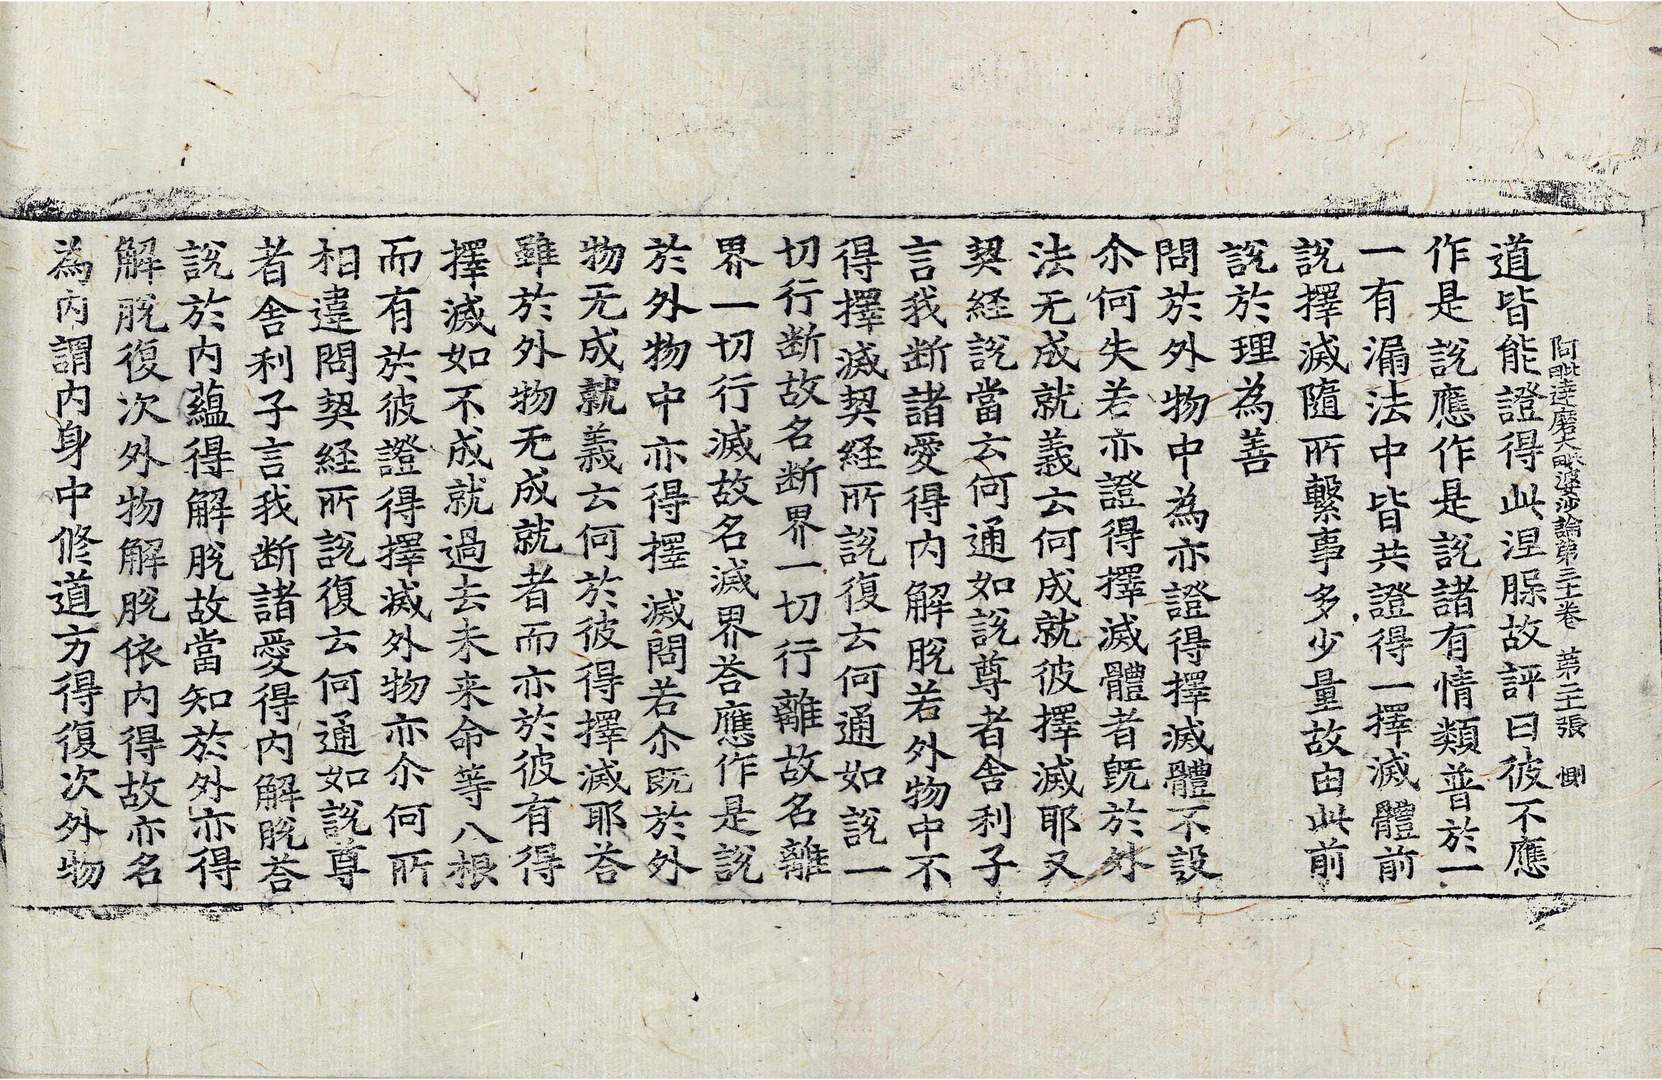 阿毗達磨大毗婆沙論第三十一卷　第二十張　惻
道皆能證得此涅槃故評曰彼不應
作是說應作是說諸有情類普於一
一有漏法中皆共證得一擇滅體前
說擇滅隨所繫事多少量故由此前
說於理為善
問於外物中為亦證得擇滅體不設
尒何失若亦證得擇滅體者旣於外
法无成就義云何成就彼擇滅耶又
契経說當云何通如說尊者舍利子
言我断諸愛得內解脫若外物中不
得擇滅契経所說復云何通如說一
切行断故名断界一切行離故名離
界一切行滅故名滅界荅應作是說
於外物中亦得擇滅問若尒旣於外
物无成就義云何於彼得擇滅耶荅
雖於外物无成就者而亦於彼有得
擇滅如不成就過去未来命等八根
而有於彼證得擇滅外物亦尒何所
相違問契経所說復云何通如說尊
者舍利子言我断諸愛得內解脫荅
說於內蘊得解脫故當知於外亦得
解脫復次外物解脫依內得故亦名
為內謂內身中修道方得復次外物